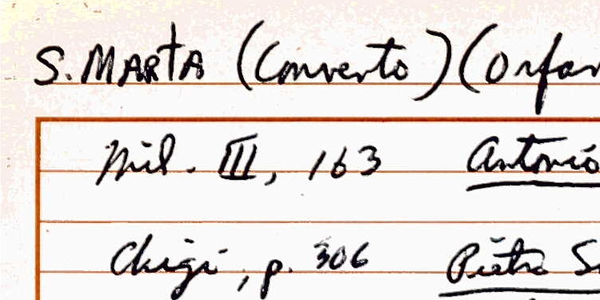 S. MARTA (Convento) (Orfan
Mil. III, 163 Antonio
Chigi, p. 306 Pietro S